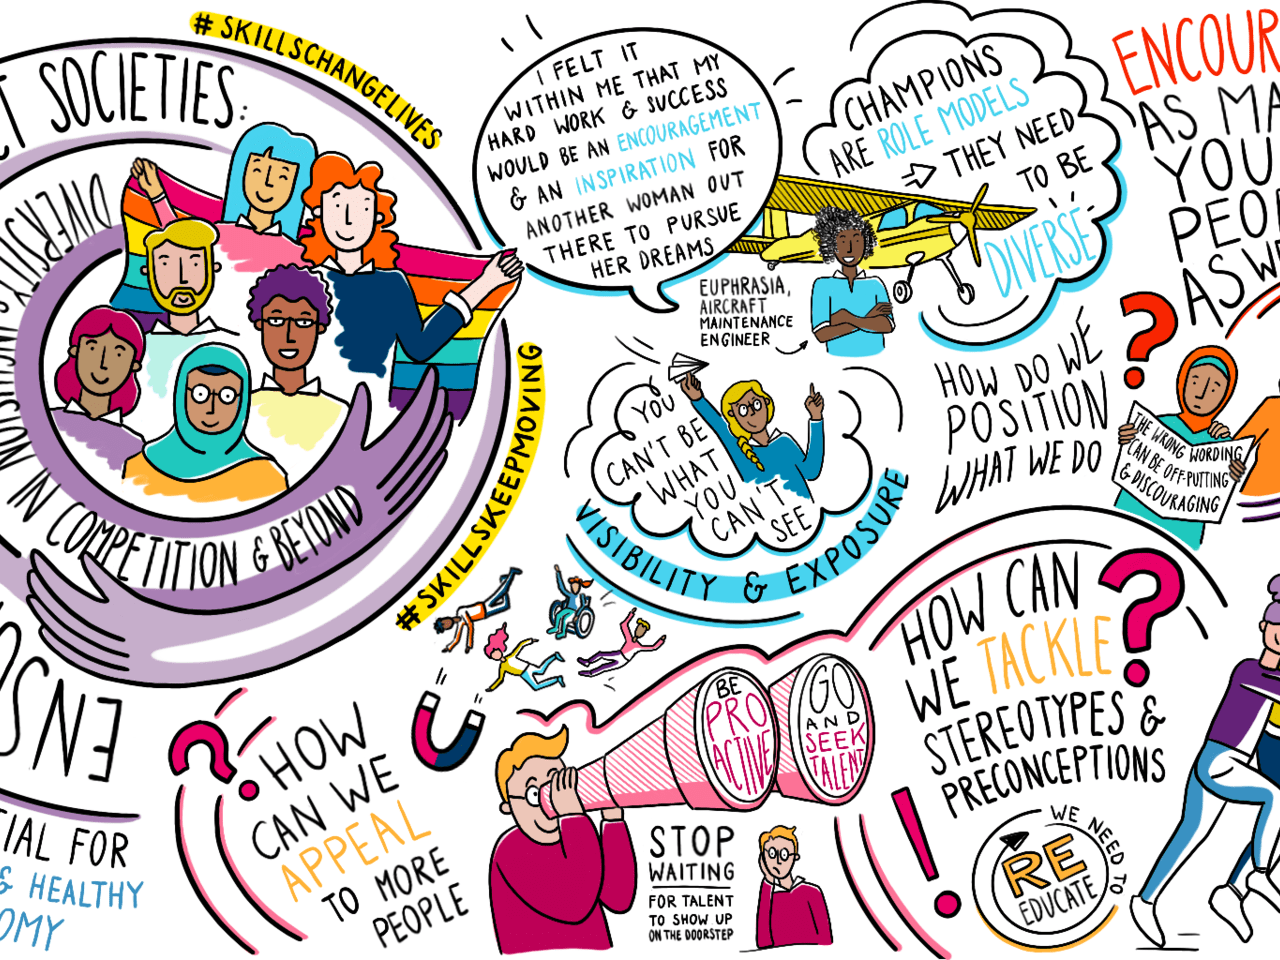 # SKILLSCHANGELIVES
SOCIETIES:
IN COMPETITION & BEYOND
# SKILLSKEEPMOVING
FOR
& HEALTHY
I FELT IT
WITHIN ME THAT MY
HARD WORK & SUCCESS
WOULD BE AN ENCOURAGEMENT
& AN INSPIRATION FOR
ANOTHER WOMAN OUT
THERE TO PURSUE
HER DREAMS
EUPHRASIA,
AIRCRAFT
MAINTENANCE
ENGINEER
CHAMPIONS
ARE ROLE MODELS
THEY NEED
TO BE
DIVERSE
ENCOUR
AS MA
YOU
PEOP
AS WI
YOU
CAN'T BE
WHAT
YOU
CAN'T
SEE
VISIBILITY & EXPOSURE
HOW DO WE
POSITION
WHAT WE DO
?
THE WRONG WORDING
CAN BE OFF-PUTTING
& DISCOURAGING
?
HOW
CAN WE
APPEAL
TO MORE
PEOPLE
BE
PRO
ACTIVE
GO
AND
SEEK
TALENT
STOP
WAITING
FOR TALENT
TO SHOW UP
ON THE DOORSTEP
HOW CAN
WE TACKLE
STEREOTYPES &
PRECONCEPTIONS
?
!
WE NEED TO
RE
EDUCATE